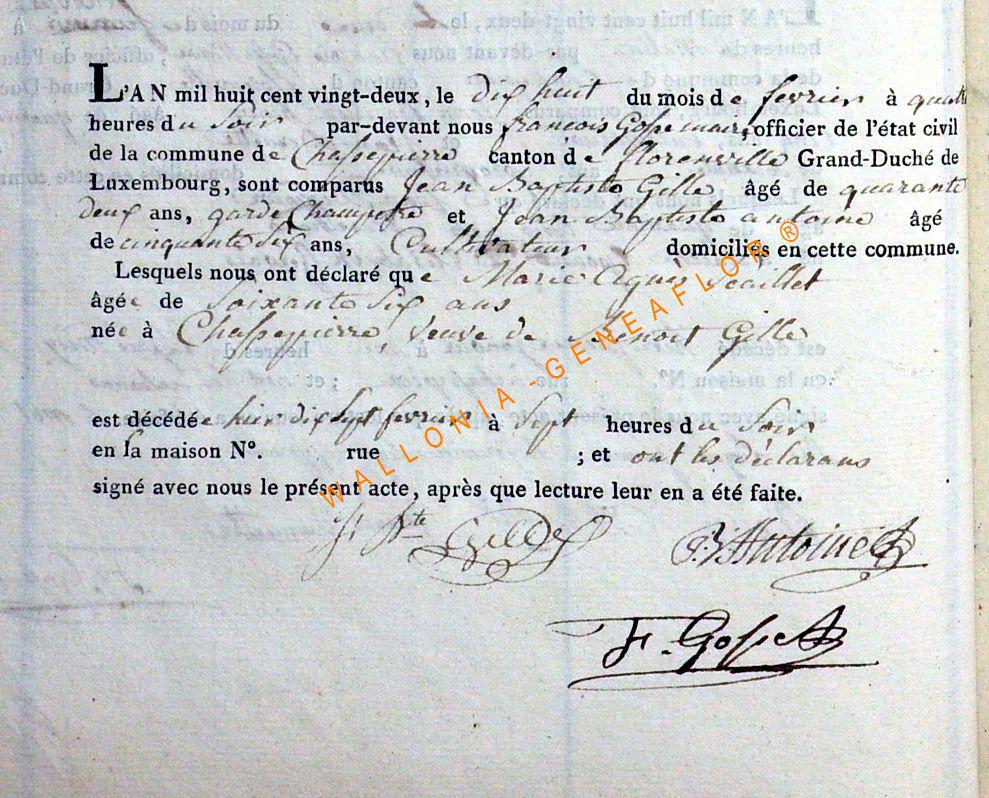 L'AN mil huit cent vingt-deux, le dix huit du mois de fevrier à quatre
heures du Soir par-devant nous francois Gosse maire, officier de l'état civil
de la commune de Chassepierre canton de florenville Grand-Duché de
Luxembourg, sont comparus Jean Baptiste Gille âgé de quarante
deux ans, garde Champetre et Jean Baptiste antoine âgé
de cinquante Six ans, Cultivateur domiciliés en cette commune.
Lesquels nous ont déclaré que Marie Agnès
âgée de Soixante Six ans
née à Chassepierre, veuve de Benoit Gille
est décédée hier dix Sept fevrier à Sept heures du Soir
en la maison N°. rue ; et ont les déclarans
signé avec nous le présent acte, après que lecture leur en a été faite.
J. Bte Gille
J. B Antoine
F. Gosse
WALLONIA - GENEAFLOR ®